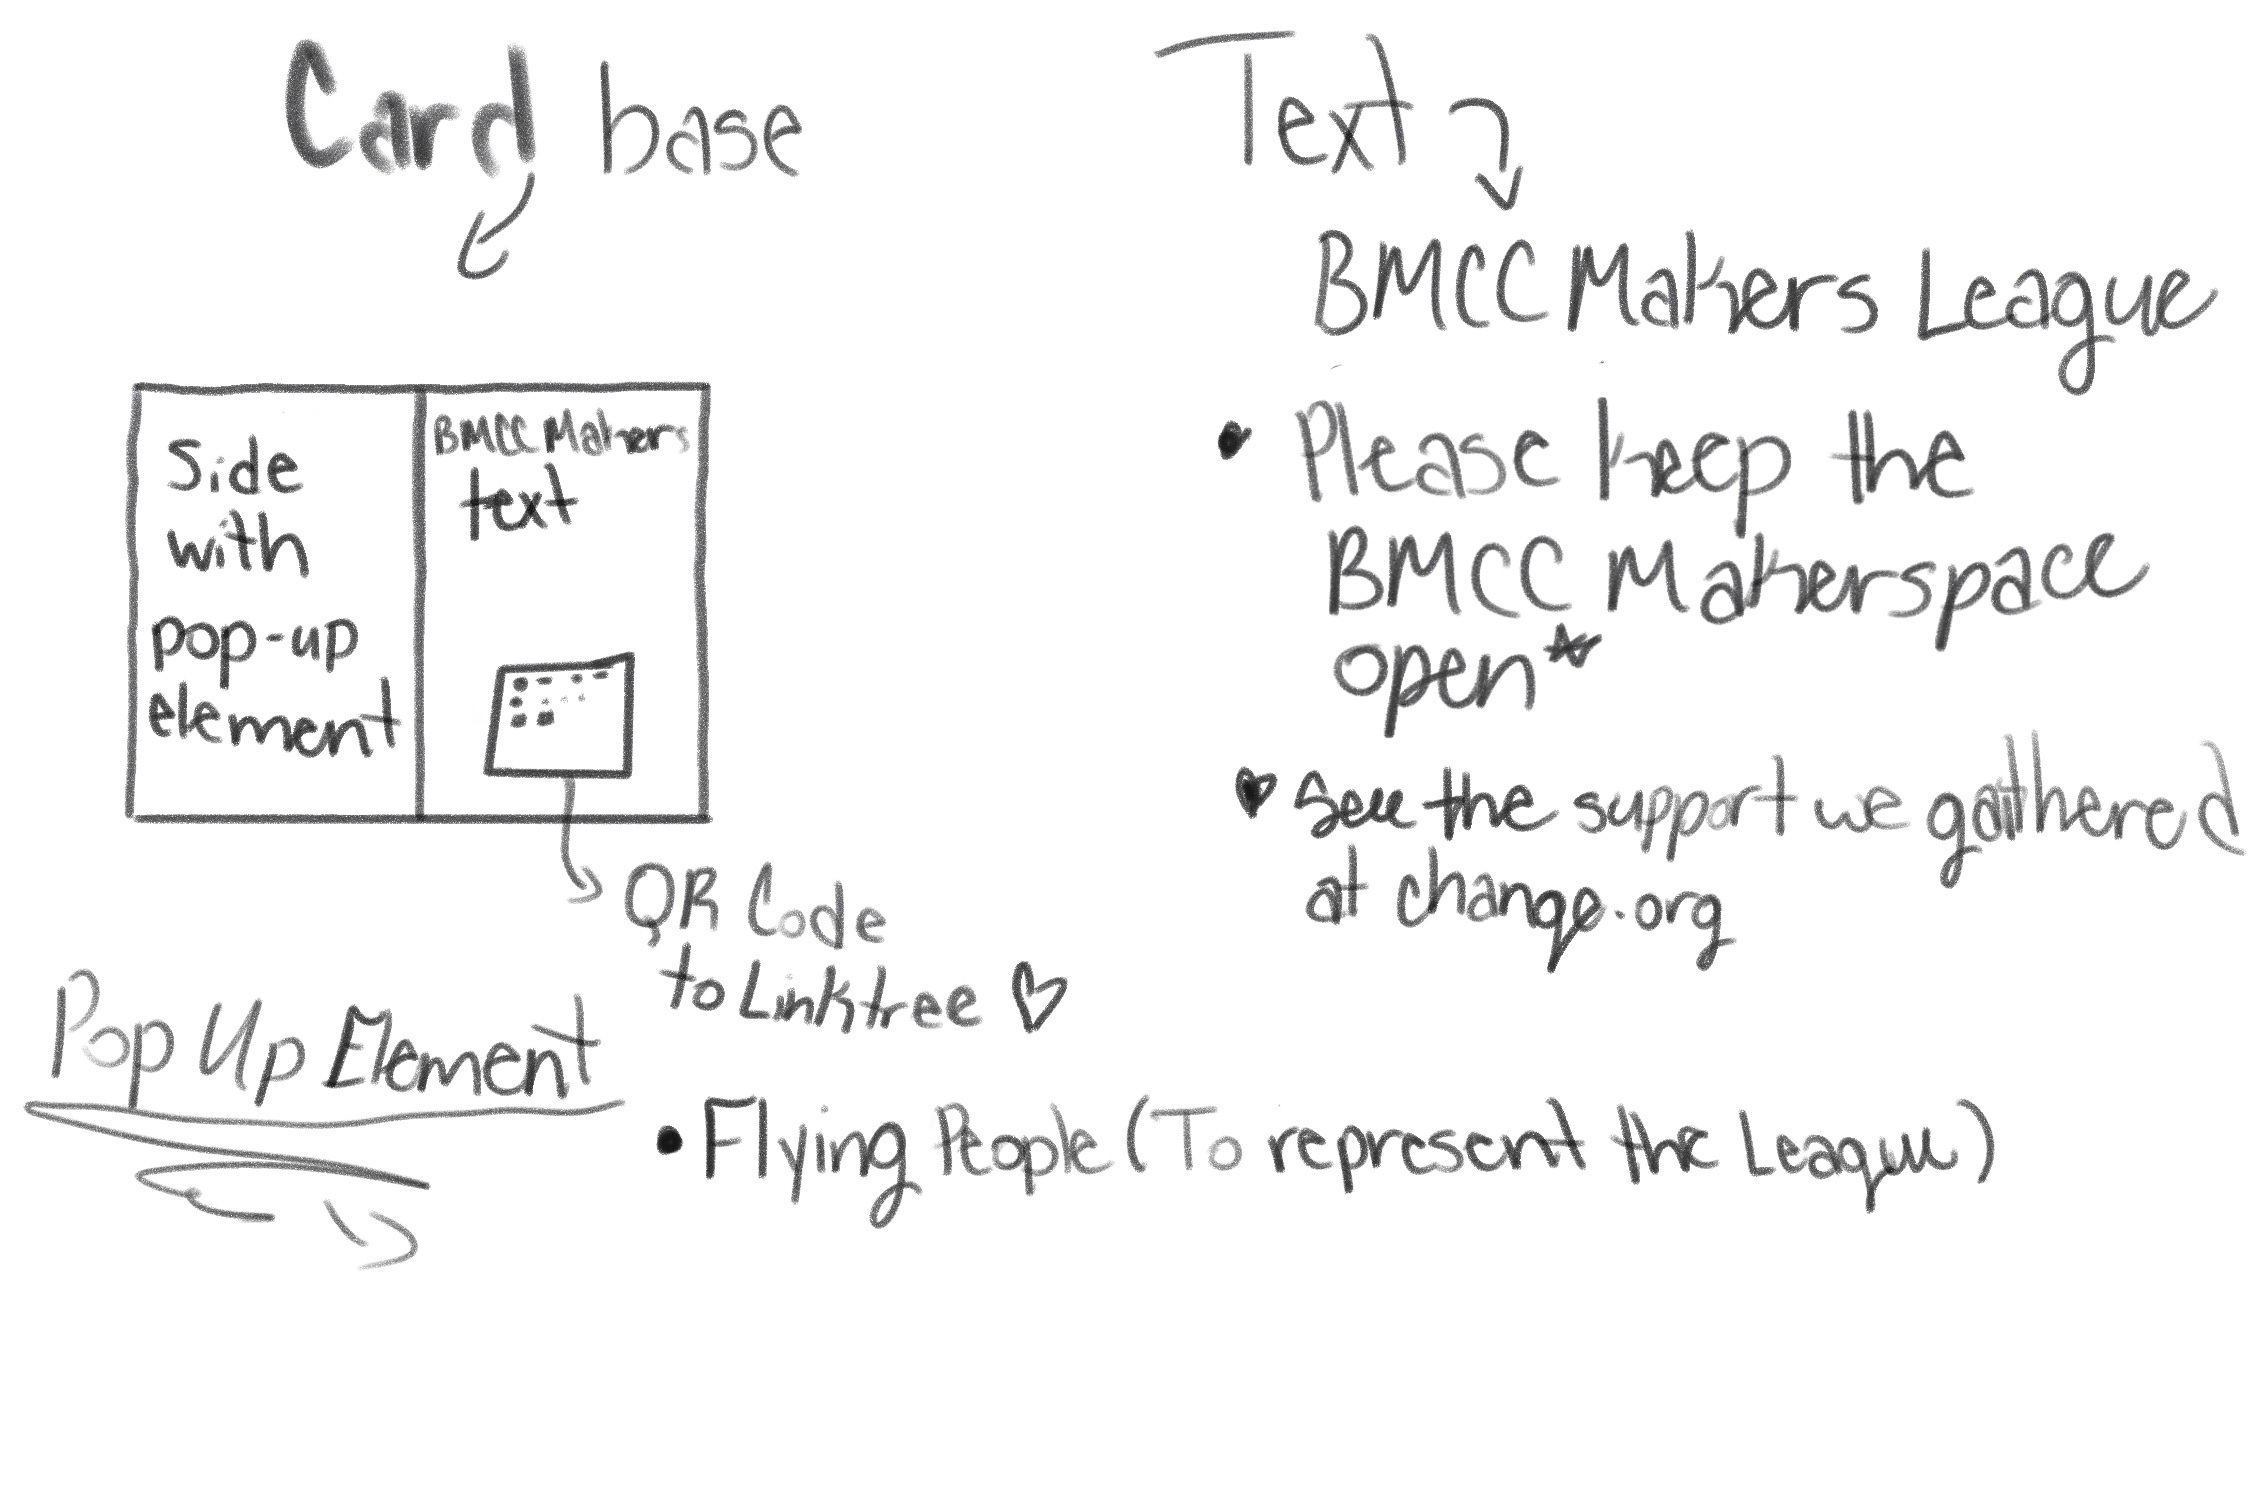 Card base
Side
with
pop-up
element
BMCC Makers
text
QR Code
to Linktree
Text
BMCC Makers League
Please keep the
BMCC Makerspace
open*
See the support we gathered
at change.org
Pop Up Element
Flying People (To represent the League)